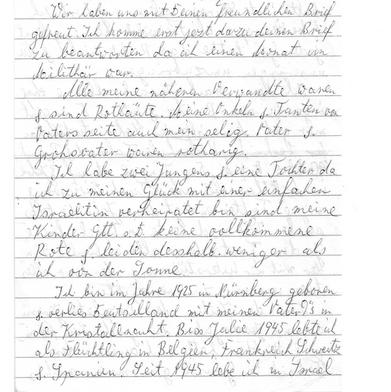 Wir haben uns mit Deinen freundlichen Brief
gefreut. Ich komme erst jezt dazu deinen Brief
zu beantworten da ich einen Monat im
Milithär war.
Alle meine näheren Verwandte waren
& sind Rothäute, Meine Onkeln & Tanten von
Vaters seite auch mein selig. Vater &
Grohsvater waren rotharig.
Ich habe zwei Jungens & eine Tochter da
ich zu meinen Glück mit einer einfachen
Israelitin verheiratet bin sind meine
Kinder Gtt s.t keine vollkommene
Rote & leiden desshalb weniger als
ich von der Sonne
Ich bin im Jahre 1925 in Nürnberg geboren
& verlies Deutsulland mit meinen Vater
in der Kristallnacht, Biss Julie 1945 lebte ich
als Flüchtling in Belgien, Frankreich Schweitz
& Spanien. Seit 1945 lebe ich in Israel